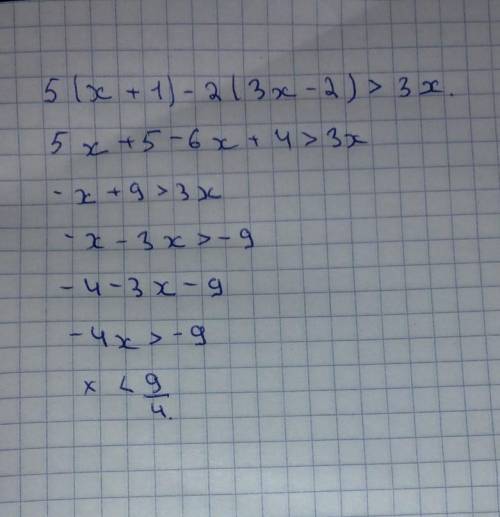 5(x+1)-2(3x-2)>3x.
5x+5-6x+4>3x
-x+9>3x
-x-3x>-9
-4-3x-9
-4x>-9
x<9/4.